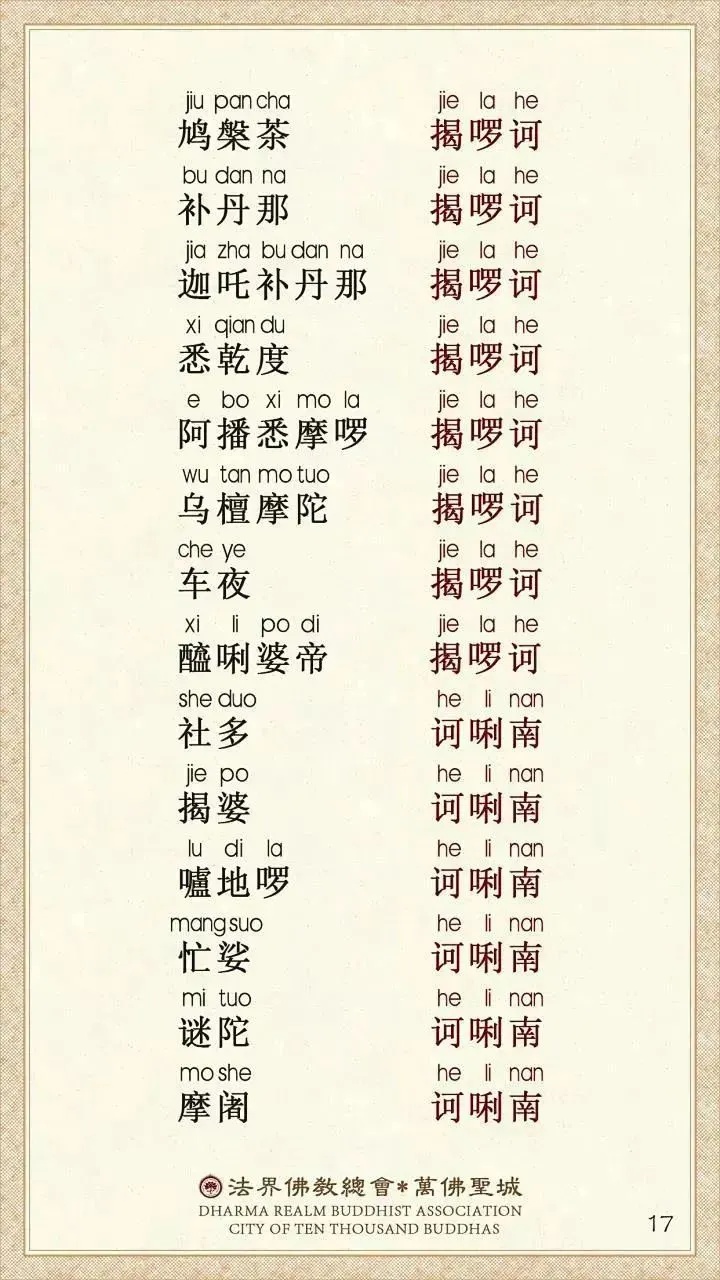 jiu pan cha jie la he
鸠槃茶 揭啰诃
bu dan na jie la he
补丹那 揭啰诃
jia zha bu dan na jie la he
迦吒补丹那 揭啰诃
xi qian du jie la he
悉乾度 揭啰诃
e bo xi mo la jie la he
阿播悉摩啰 揭啰诃
wu tan mo tuo jie la he
乌檀摩陀 揭啰诃
che ye jie la he
车夜 揭啰诃
xi li po di jie la he
醯唎婆帝 揭啰诃
she duo he li nan
社多 诃唎南
jie po he li nan
揭婆 诃唎南
lu di la he li nan
嚧地啰 诃唎南
mang suo he li nan
忙娑 诃唎南
mi tuo he li nan
谜陀 诃唎南
mo she he li nan
摩阇 诃唎南
法界佛教總會*萬佛聖城
DHARMA REALM BUDDHIST ASSOCIATION
CITY OF TEN THOUSAND BUDDHAS
17